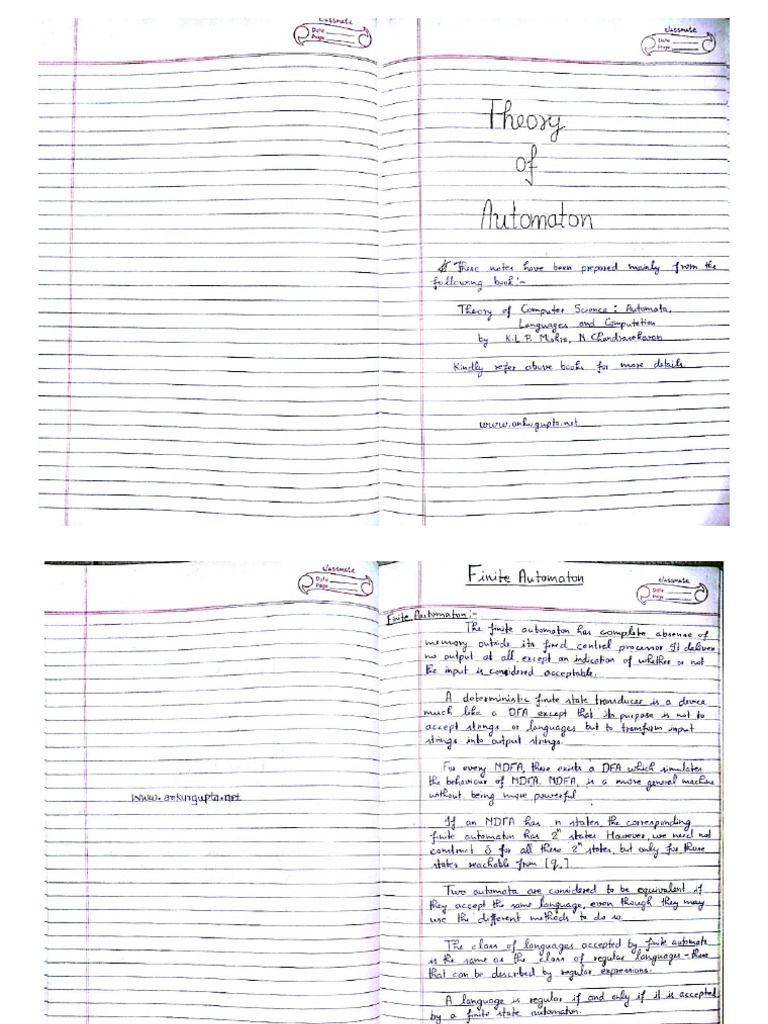 classmate
Date
Page
classmate
Date
Page
Theory
of
Automaton
# These notes have been prepared mainly from the
following book:-
Theory of Computer Science: Automata,
Languages and Computation
by K.L.P. Mishra, N. Chandrasekaran
Kindly refer above books for more details.
www.ankurgupta.net
classmate
Date
Page
www.ankurgupta.net
Finite Automaton
classmate
Date
Page
Finite Automaton:-
The finite automaton has complete absense of
memory outside its fixed control processor. It delivers
no output at all, except an indication of whether or not
the input is considered acceptable.
A deterministic finite state transducer is a device
much like a DFA except that its purpose is not to
accept strings or languages but to transform input
strings into output strings.
For every NDFA, there exists a DFA which simulates
the behaviour of NDFA. NDFA, is a more general machine
without being more powerful.
If an NDFA has n states, the corresponding
finite automaton has 2ⁿ states. However, we need not
construct δ for all these 2ⁿ states, but only for those
states reachable from [q₀]
Two automata are considered to be equivalent if
they accept the same language, even though they may
use the different methods to do so.
The class of languages accepted by finite automata
is the same as the class of regular languages - those
that can be described by regular expressions.
A language is regular if and only if it is accepted
by a finite state automaton.